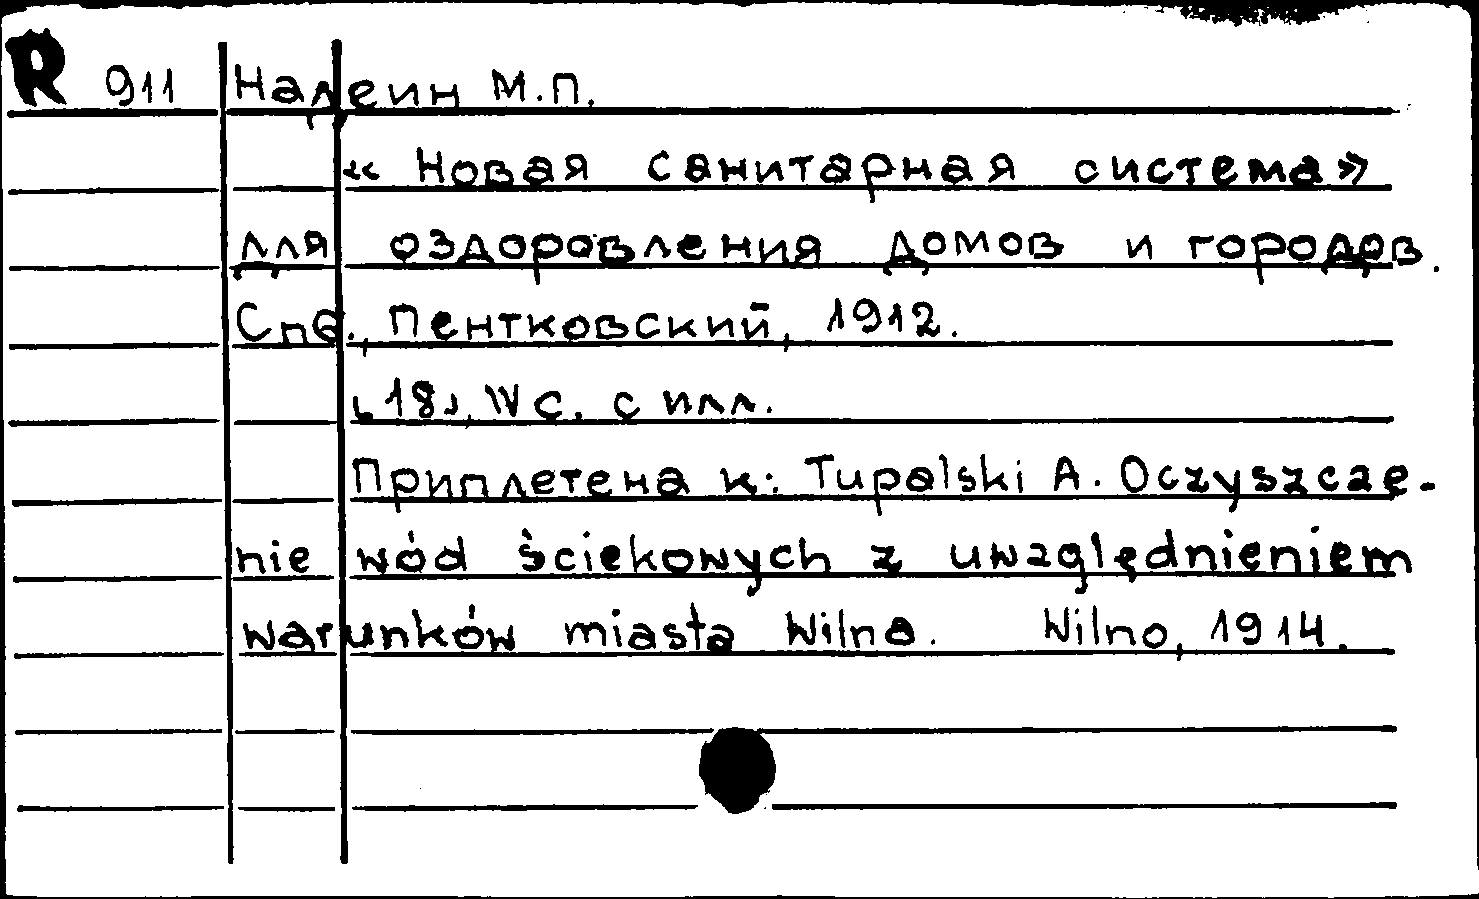 R 911 Надеин М.П.
« Новая санитарная система»
для оздоровления домов и городов.
Спб., Пентковский, 1912.
[18], IV с. с илл.
Приплетена к: Tupalski A. Oczyszcze-
nie wód ściekowych z uwzględnieniem
warunków miasta Wilna. Wilno, 1914.